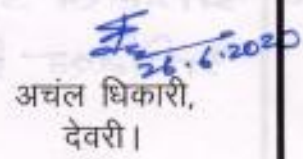 26.6.2020
अचंल धिकारी,
देवरी।